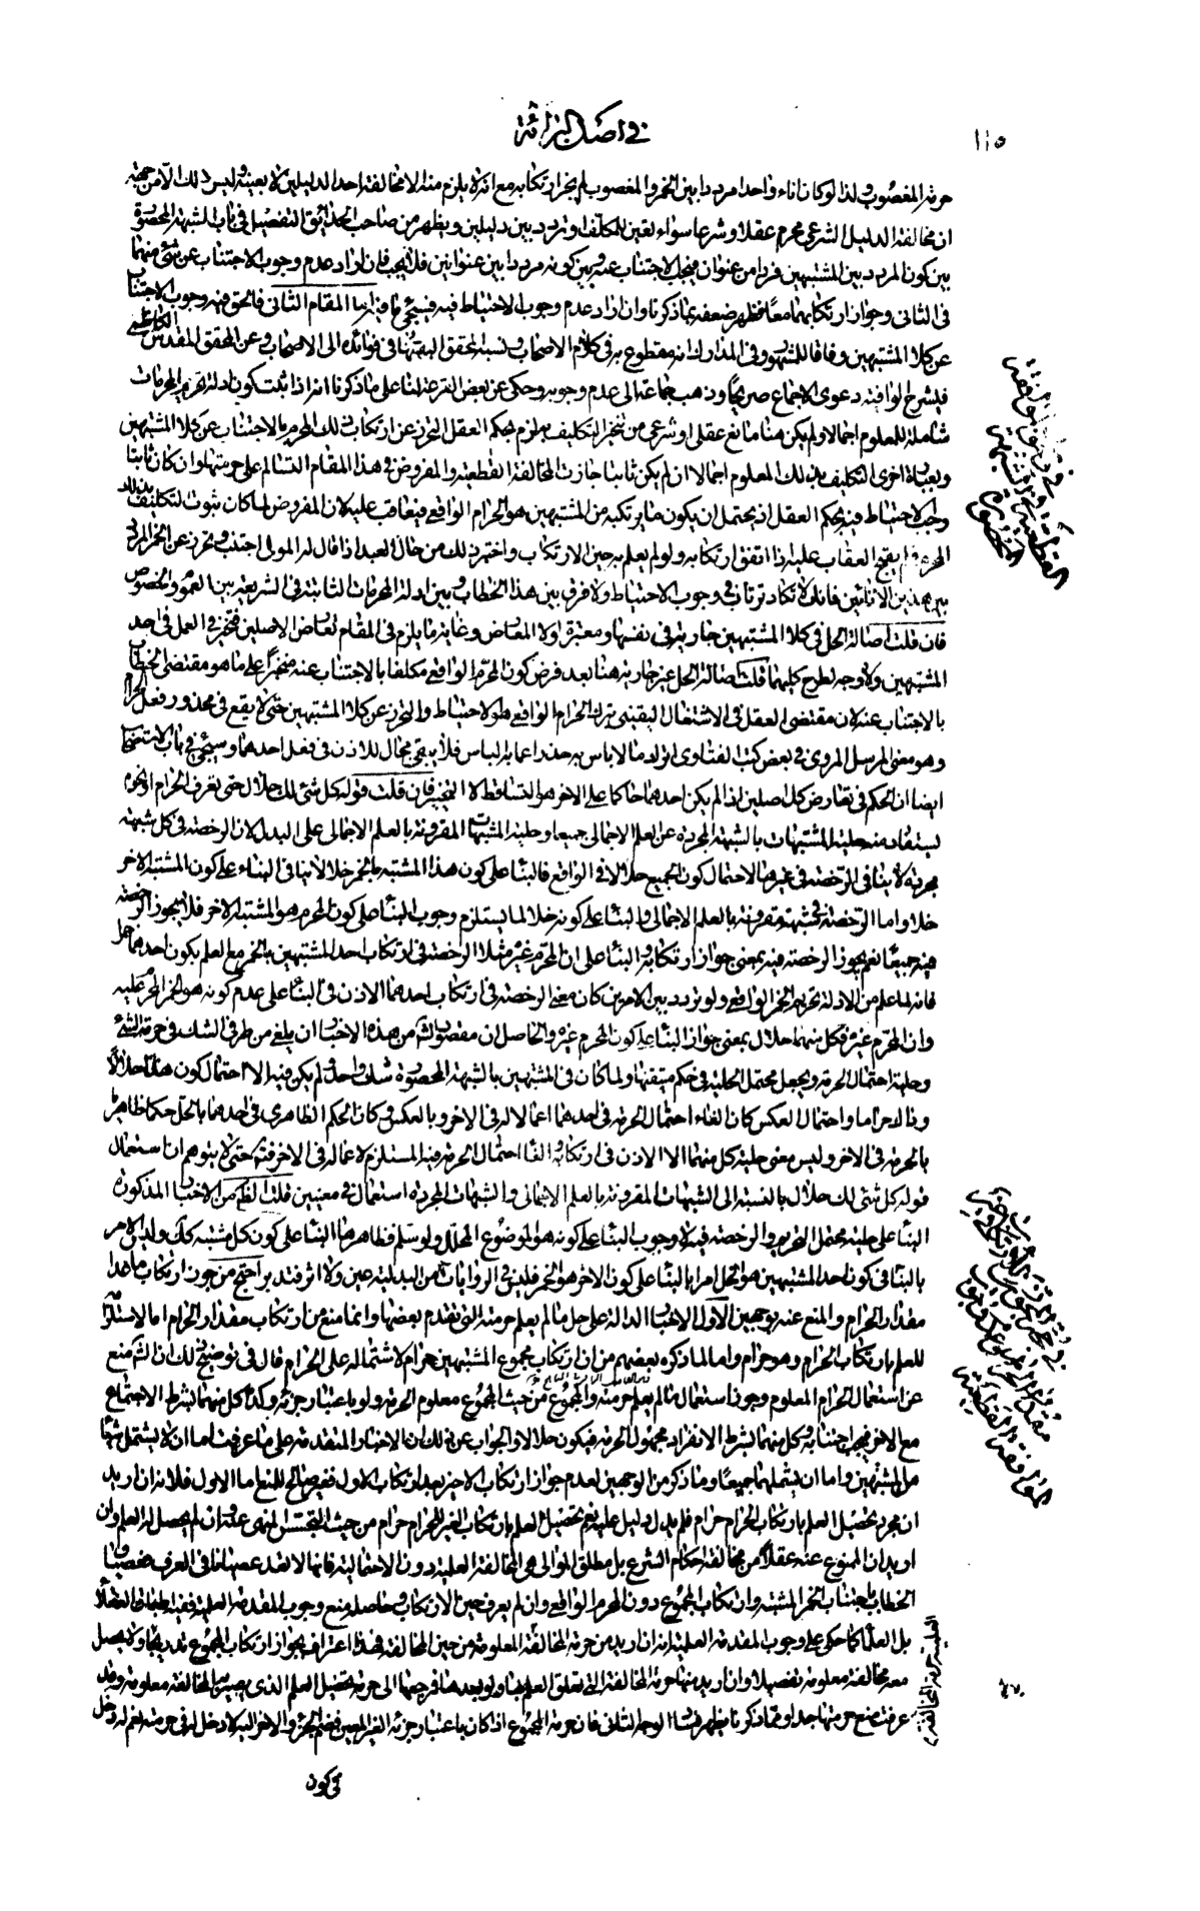 في اصل البرائة
١١٥
حرمة المغصوب ولذا لو كان اناء واحد مرددا بين الخمر والمغصوب لم يجز ارتكابه مع انه لا يلزم منه الا مخالفة احد الدليلين لا بعينه وليس ذلك الا من جهة
ان مخالفة الدليل الشرعي محرم عقلا وشرعا سواء تعين للمكلف او تردد بين دليلين ويظهر من صاحب الحدائق التفصيل في باب الشبهة المحصورة
بين كون المردد بين المشتبهين فردا من عنوان فيجب الاجتناب عنه وبين كونه مرددا بين عنوانين فلا يجب فان اراد عدم وجوب الاجتناب عن شئ منهما
في الثاني وجواز ارتكابهما معا فظهر ضعفه بما ذكرنا وان اراد عدم وجوب الاحتياط فيه فسيجئ ما فيه اما المقام الثاني فالحق فيه وجوب الاجتناب
عن كلا المشتبهين وفاقا للمشهور وفي المدارك انه مقطوع به في كلام الاصحاب ونسبه المحقق البهبهاني في فوائده الى الاصحاب وعن المحقق المقدس الكاظمي
في شرح الوافية دعوى الاجماع صريحا وذهب جماعة الى عدم وجوبه وحكى عن بعض القرعة لنا على ما ذكرنا انه اذا ثبت كون ادلة تحريم المحرمات
شاملة للمعلوم اجمالا ولم يكن هنا مانع عقلي او شرعي من تنجز التكليف به لزم بحكم العقل التحرز عن ارتكاب ذلك المحرم بالاجتناب عن كلا المشتبهين
وبعبارة اخرى التكليف بذلك المعلوم اجمالا ان لم يكن ثابتا جازت المخالفة القطعية والمفروض في هذا المقام التسالم على حرمتها وان كان ثابتا
وجب الاحتياط فيه بحكم العقل اذ يحتمل ان يكون ما يرتكبه من المشتبهين هو الحرام الواقعي فيعاقب عليه لان المفروض لما كان ثبوت التكليف بذلك
المحرم فلم يقبح العقاب عليه اذا اتفق ارتكابه ولو لم يعلم به حين الارتكاب واختبر ذلك من حال العبد اذا قال له المولى اجتنب وتحرز عن الخمر المردد
بين هذين الانائين فانك لا تكاد ترتاب في وجوب الاحتياط ولا فرق بين هذا الخطاب وبين ادلة المحرمات الثابتة في الشريعة الا العموم والخصوص
فان قلت اصالة الحل في كلا المشتبهين جارية في نفسها ومعتبرة لولا المعارض وغاية ما يلزم في المقام تعارض الاصلين فيتخير في العمل في احد
المشتبهين ولا وجه لطرح كليهما قلت اصالة الحل غير جارية هنا بعد فرض كون المحرم الواقعي مكلفا بالاجتناب عنه منجزا على ما هو مقتضى الخطاب
بالاجتناب عنه لان مقتضى العقل في الاشتغال اليقيني بترك الحرام الواقعي هو الاحتياط والتحرز عن كلا المشتبهين حتى لا يقع في محذور فعل الحرام
وهو معنى المرسل المروي في بعض كتب الفتاوى اترك ما لا باس به حذرا عما به الباس فلا يبقى مجال للاذن في فعل احدهما وسيجئ في باب الاستصحاب
ايضا ان الحكم في تعارض كل اصلين اذا لم يكن احدهما حاكما على الاخر هو التساقط لا التخيير فان قلت قوله كل شئ لك حلال حتى تعرف الحرام او نحوه
يستفاد منه حلية المشتبهات بالشبهة المجردة عن العلم الاجمالي جميعا وحلية الشبهات المقرونة بالعلم الاجمالي على البدل لان الرخصة في كل شبهة
مجردة لا ينافي الرخصة في غيرها لاحتمال كون الجميع حلالا في الواقع فالبناء على كون هذا المشتبه بالخمر خلا لا ينافي البناء على كون المشتبه الاخر
خلا واما الرخصة في شبهة مقرونة بالعلم الاجمالي والبناء على كونه خلا لما يستلزم وجوب البناء على كون المحرم هو المشتبه الاخر فلا يجوز الرخصة
فيه جميعا نعم يجوز الرخصة فيه بمعنى جواز ارتكابه والبناء على ان المحرم غيره مثلا الرخصة في ارتكاب احد المشتبهين بالخمر مع العلم بكون احدهما خمرا
فانه لما علم من الادلة تحريم الخمر الواقعي ولو تردد بين الامرين كان معنى الرخصة في ارتكاب احدهما الاذن في البناء على عدم كونه هو الخمر المحرم عليه
وان المحرم غيره فكل منهما حلال بمعنى جواز البناء على كون المحرم غيره والحاصل ان مقصود الشارع من هذه الاخبار ان يلغي من طرفي الشك في حرمة الشئ
وحليته احتمال الحرمة ويجعل محتمل الحلية في حكم متيقنها ولما كان في المشتبهين بالشبهة المحصورة شك واحد ولم يكن فيه الا احتمال كون هذا حلالا
وذاك حراما واحتمال العكس كان الغاء احتمال الحرمة في احدهما اعمالا له في الاخر وبالعكس وكان الحكم الظاهري في احدهما بالحل حكما ظاهريا
بالحرمة في الاخر وليس معنى حلية كل منهما الا الاذن في ارتكابه والغاء احتمال الحرمة فيه المستلزم لاعماله في الاخر فتأمل حتى لا يتوهم ان استعمال
قوله كل شئ لك حلال بالنسبة الى الشبهات المقرونة بالعلم الاجمالي والشبهات المجردة استعمال في معنيين قلت الظاهر من الاخبار المذكورة
البناء على حلية محتمل التحريم والرخصة فيه لا وجوب البناء على كونه هو الموضوع المحلل ولو سلم فظاهرها البناء على كون كل مشتبه كذلك وليس الامر
بالبناء في كون احد المشتبهين هو الخل امرا بالبناء على كون الاخر هو الخمر فليس في الروايات من البدلية عين ولا اثر فتدبر احتج من جوز ارتكاب ما عدا
مقدار الحرام والمنع عنه بوجهين الاول الاخبار الدالة على حل ما لم يعلم حرمته التي تقدم بعضها وانما منع من ارتكاب مقدار الحرام اما لاستلزامه
للعلم بارتكاب الحرام وهو حرام واما لما ذكره بعضهم من ان ارتكاب مجموع المشتبهين حرام لاشتماله على الحرام قال في توضيح ذلك ان الشارع منع
عن استعمال الحرام المعلوم وجوز استعمال ما لم يعلم حرمته والمجموع من حيث المجموع معلوم الحرمة ولو باعتبار جزئه وكذا كل منهما بشرط الاجتماع
مع الاخر فيجب اجتنابه وكل منهما بشرط الانفراد مجهول الحرمة فيكون حلالا والجواب عن ذلك ان الاخبار المتقدمة على ما عرفت اما ان لا يشتمل شيئا
من المشتبهين واما ان يشملهما جميعا وما ذكر من الوجهين لعدم جواز ارتكاب الاخير بعد ارتكاب الاول فغير صالح للمنع اما الاول فلانه ان اريد
ان مجرد تحصيل العلم بارتكاب الحرام حرام فلم يدل دليل عليه نعم تحصيل العلم بارتكاب الغير للحرام حرام من حيث التجسس المنهي عنه وان لم يحصل له العلم وان
اريد ان الممنوع عنه عقلا من مخالفة احكام الشرع بل مطلق الموالي هي المخالفة العلمية دون الاحتمالية فانها لا تعد عصيانا في العرف فعصيان
الخطاب باجتناب الخمر المشتبه هو ارتكاب المجموع دون المحرم الواقعي وان لم يعرف حين الارتكاب وحاصله منع وجوب المقدمة العلمية ففيه اطباق العقلاء
بل العلماء كما حكى على وجوب المقدمة العلمية انه ان اريد من حرمة المخالفة العلمية حرمة المخالفة المعلومة حين المخالفة فهذا اعتراف بجواز ارتكاب المجموع تدريجا ولا يحصل
معه مخالفة معلومة تفصيلا وان اريد منها حرمة المخالفة التي تعلق العلم بها ولو بعدها فمرجعها الى حرمة تحصيل العلم الذي يصير به المخالفة معلومة وقد
عرفت منع حرمتها جدا ومما ذكرنا يظهر فساد الوجه الثاني فان حرمة المجموع اذا كان باعتبار جزئه الغير المعين فضم الجزء الاخر اليه لا دخل له في حرمته نعم له دخل
في كون